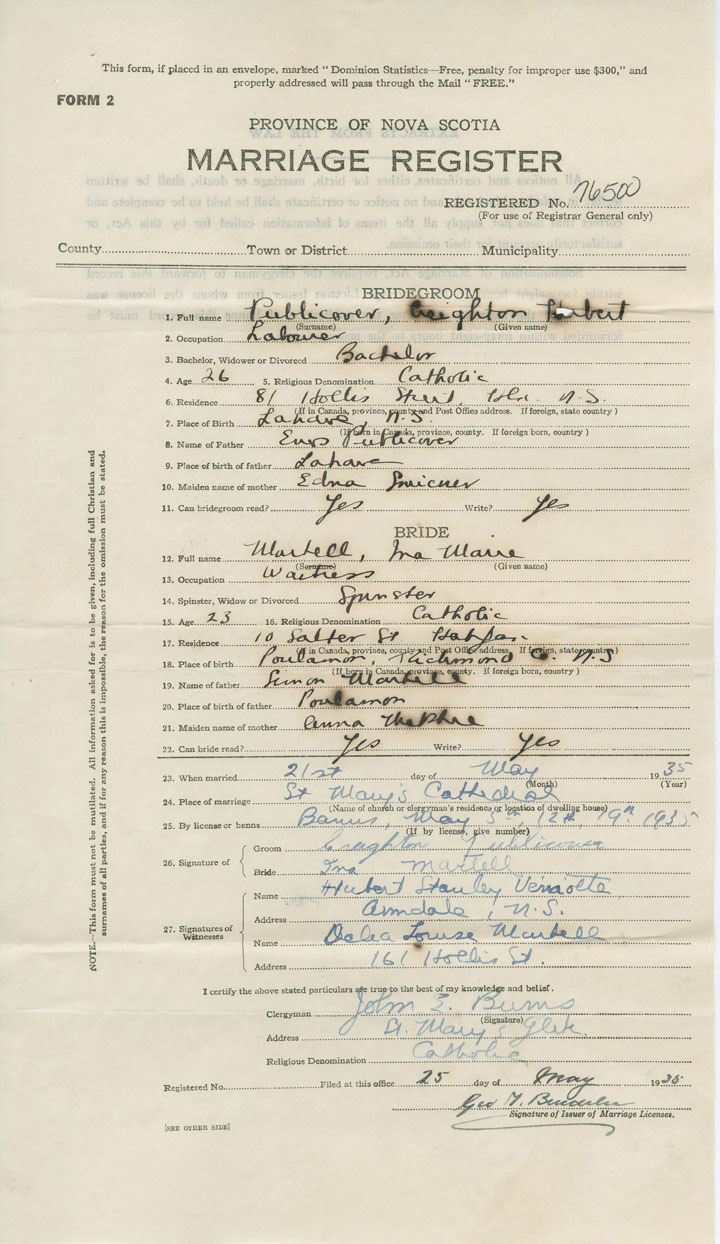 This form, if placed in an envelope, marked "Dominion Statistics—Free, penalty for improper use $300," and
properly addressed will pass through the Mail "FREE."
FORM 2
PROVINCE OF NOVA SCOTIA
MARRIAGE REGISTER
REGISTERED No. 76500
(For use of Registrar General only)
County Town or District Municipality
BRIDEGROOM
1. Full name Publicover, Creighton Hubert
(Surname) (Given name)
2. Occupation Labourer
3. Bachelor, Widower or Divorced Bachelor
4. Age 26 5. Religious Denomination Catholic
6. Residence 81 Hollis Street, N.S.
(If in Canada, province, county and Post Office address. If foreign, state country)
7. Place of Birth Lahave, N.S.
(If born in Canada, province, county. If foreign born, country)
8. Name of Father Enos Publicover
9. Place of birth of father Lahave
10. Maiden name of mother Edna
11. Can bridegroom read? Yes Write? Yes
BRIDE
12. Full name Martell, Ina Marie
(Surname) (Given name)
13. Occupation Waitress
14. Spinster, Widow or Divorced Spinster
15. Age 23 16. Religious Denomination Catholic
17. Residence 10 Salter St Halifax
(If in Canada, province, county and Post Office address. If foreign, state country)
18. Place of birth Poulamon, Richmond Co. N.S
(If born in Canada, province, county. If foreign born, country)
19. Name of father Simon Martell
20. Place of birth of father Poulamon
21. Maiden name of mother Anna
22. Can bride read? Yes Write? Yes
23. When married 21st day of May 1935
(Month) (Year)
24. Place of marriage St Mary's Cathedral
(Name of church or clergyman's residence or location of dwelling house)
25. By license or banns Banns, May 5th, 12th, 19th 1935
(If by license, give number)
26. Signature of
Groom Creighton Publicover
Bride Ina Martell
27. Signatures of Witnesses
Name Hubert Stanley
Address Armdale, N.S.
Name Louise Martell
Address 161 Hollis St.
I certify the above stated particulars are true to the best of my knowledge and belief.
Clergyman John E. Burns
(Signature)
Address St. Mary's Glebe
Religious Denomination Catholic
Registered No. Filed at this office 25 day of May 1935
Geo
Signature of Issuer of Marriage Licenses.
[SEE OTHER SIDE]
NOTE.—This form must not be mutilated. All information asked for is to be given, including full Christian and
surnames of all parties, and if for any reason this is impossible, the reason for the omission must be stated.